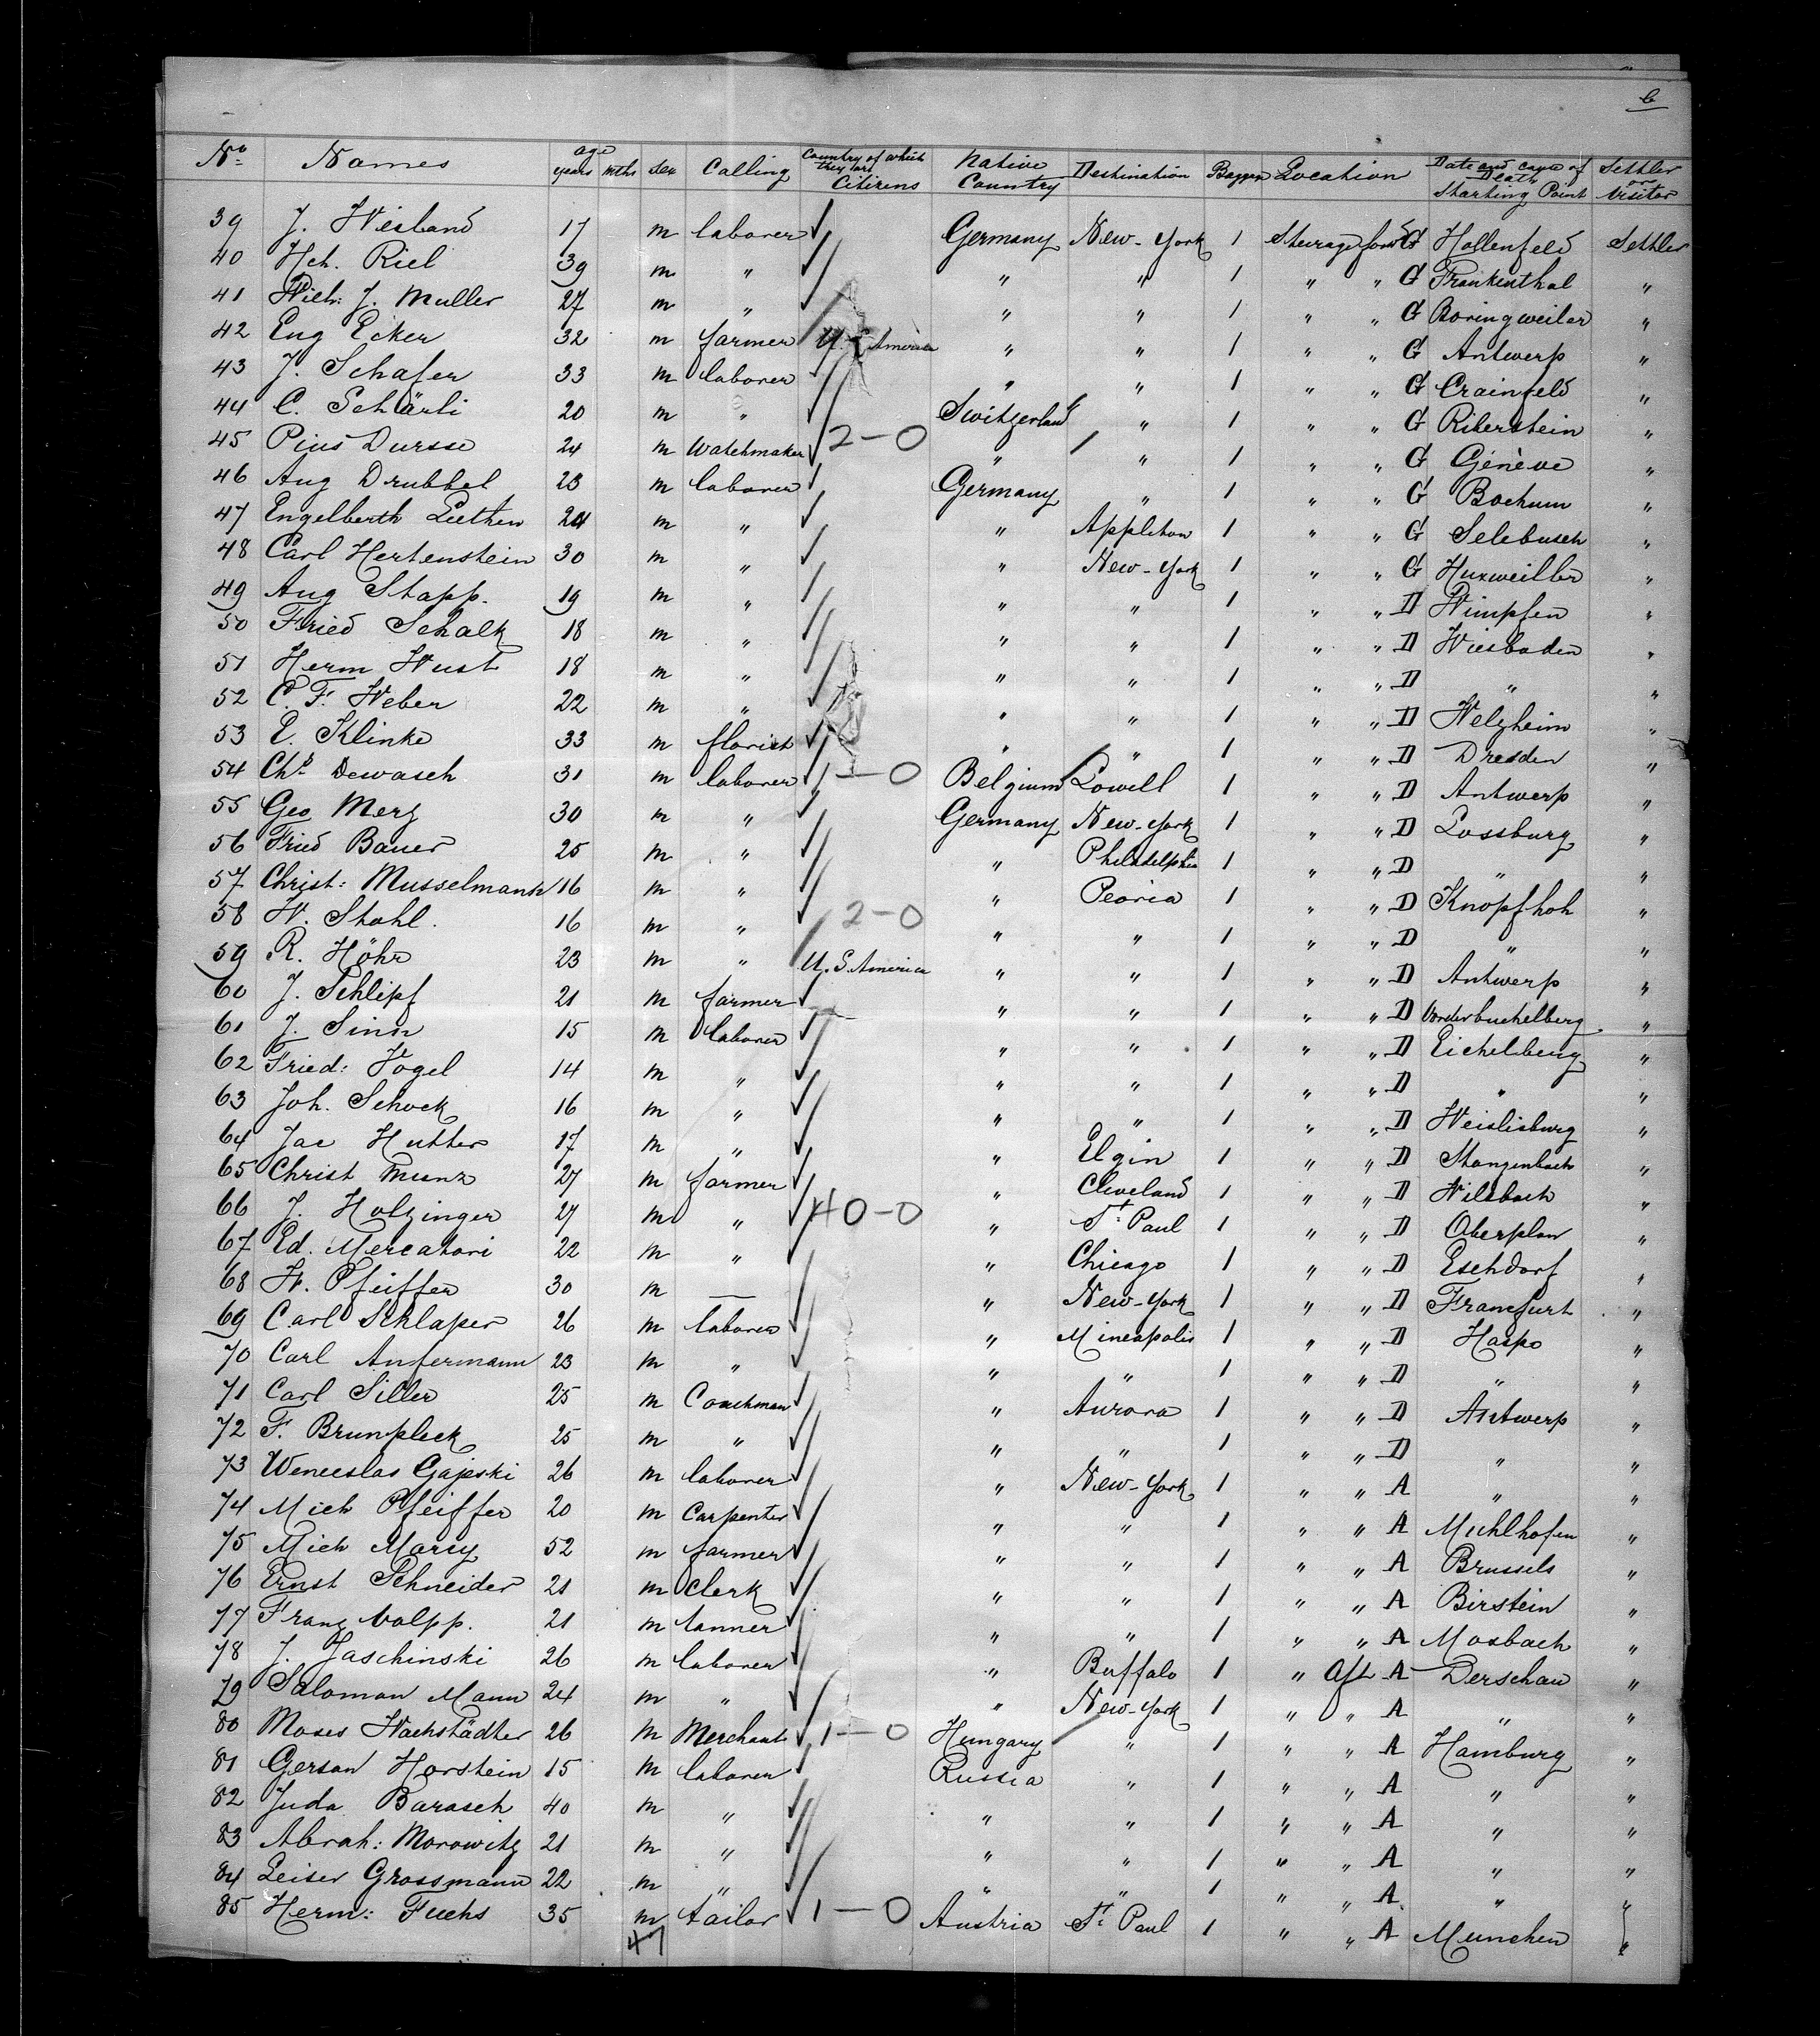 6
No Names age years mths sex Calling Country of which they are Citizens Native Country Destination Location Date and cause of Death Starting Point Settler or Visitor
39 J. Weiland 17 m laborer Germany New-York 1 Steerage forwd G Hollenfeld Settler
40 Hch. Riel 39 m " " " 1 " " G Frankenthal "
41 Wilh: J. Muller 27 m " " " 1 " " G Boringweiler "
42 Eug Ecker 32 m farmer U. S. America " " 1 " " G Antwerp "
43 J. Schafer 33 m laborer " " 1 " " G Crainfeld "
44 C. Schärli 20 m " Switzerland " 1 " " G Riberstein "
45 Pius Dursse 24 m Watchmaker 2-0 " " 1 " " G Génève "
46 Aug Drubbel 23 m laborer Germany " 1 " " G Bochum "
47 Engelberth Luthen 24 m " " Appleton 1 " " G Selebusch "
48 Carl Hertenstein 30 m " " New-York 1 " " G Huxweiller "
49 Aug Stapp. 19 m " " " 1 " " D Wimpfen "
50 Fried Schalk 18 m " " " 1 " " D Wiesbaden "
51 Herm Wust 18 m " " " 1 " " D " "
52 C. F. Weber 22 m " " " 1 " " D Welzheim "
53 E. Klinke 33 m florist " " 1 " " D Dresden "
54 Chs Dewasch 31 m laborer 1-0 Belgium Lowell 1 " " D Antwerp "
55 Geo Merz 30 m " Germany New-York 1 " " D Lossburg "
56 Fried Bauer 25 m " " Philadelphia 1 " " D " "
57 Christ: Musselmann 16 m " " Peoria 1 " " D Knopfhoh "
58 W. Stahl. 16 m " 2-0 " " 1 " " D " "
59 R. Höhr 23 m " U. S. America " " 1 " " D Antwerp "
60 J. Schlipf 21 m farmer " " 1 " " D Vorderbuchelberg "
61 J. Sinn 15 m laborer " " 1 " " D Eichelberg "
62 Fried: Vogel 14 m " " " 1 " " D " "
63 Joh. Schock 16 m " " " 1 " " D Weislisburg "
64 Jac Hutter 17 m " " Elgin 1 " " D Stangenbach "
65 Christ Munz 27 m farmer " Cleveland 1 " " D Wilsbach "
66 J. Holzinger 27 m " 40-0 " St. Paul 1 " " D Oberplan "
67 Ed. Mercatori 22 m " " Chicago 1 " " D Eschdorf "
68 W. Pfeiffer 30 m — " New-York 1 " " D Francfurt "
69 Carl Schlaper 26 m laborer " Mineapolis 1 " " D Haspo "
70 Carl Anfermann 23 m " " " 1 " " D " "
71 Carl Siller 25 m Coachman " Aurora 1 " " D Antwerp "
72 F. Brunpleck 25 m " " " 1 " " D " "
73 Wenceslas Gajeski 26 m laborer " New-York 1 " " A " "
74 Mich Pfeiffer 20 m Carpenter " " 1 " " A Muhlhofen "
75 Mich Marcy 52 m farmer " " 1 " " A Brussels "
76 Ernst Schneider 21 m Clerk " " 1 " " A Birstein "
77 Franz Volpp. 21 m tanner " " 1 " " A Mosbach "
78 J. Jaschinski 26 m laborer " Buffalo 1 " Aft A Derschau "
79 Salomon Mann 24 m " " New-York 1 " " A " "
80 Moses Wachstädter 26 m Merchant 1-0 Hungary " 1 " " A Hamburg "
81 Gerson Horstein 15 m laborer Russia " 1 " " A " "
82 Juda Barasch 40 m " " " 1 " " A " "
83 Abrah: Morowitz 21 m " " " 1 " " A " "
84 Leiser Grossmann 22 m " " " 1 " " A " "
85 Herm: Fuchs 35 m tailor 1-0 Austria St. Paul 1 " " A Munchen "
47